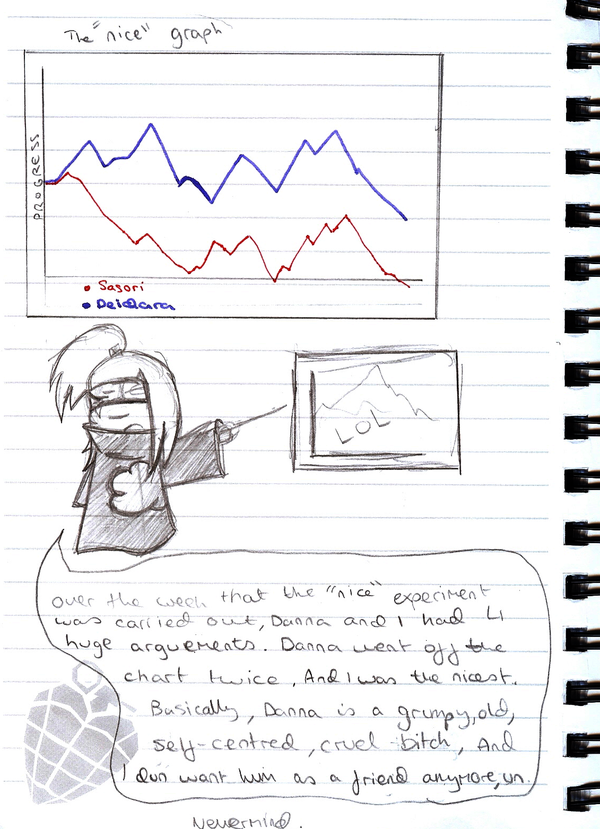 The "nice" graph
PROGRESS
Sasori
Deidara
LOL
over the week that the "nice" experiment
was carried out, Danna and I had 4
huge arguements. Danna went off the
chart twice, And I was the nicest.
Basically, Danna is a grumpy, old,
self-centred, cruel bitch, And
I don want him as a friend anymore, un.
Nevermind.